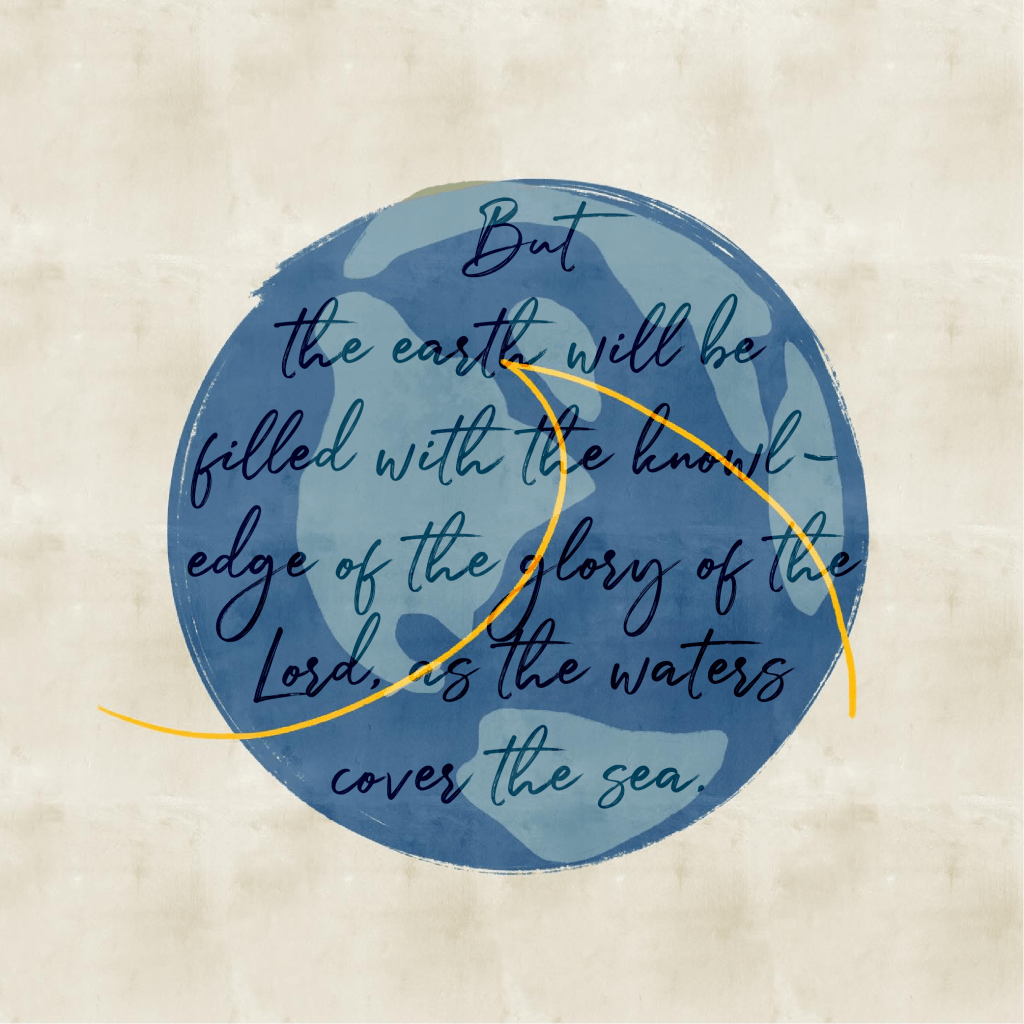 But
the earth will be
filled with the knowl-
edge of the glory of the
Lord, as the waters
cover the sea.